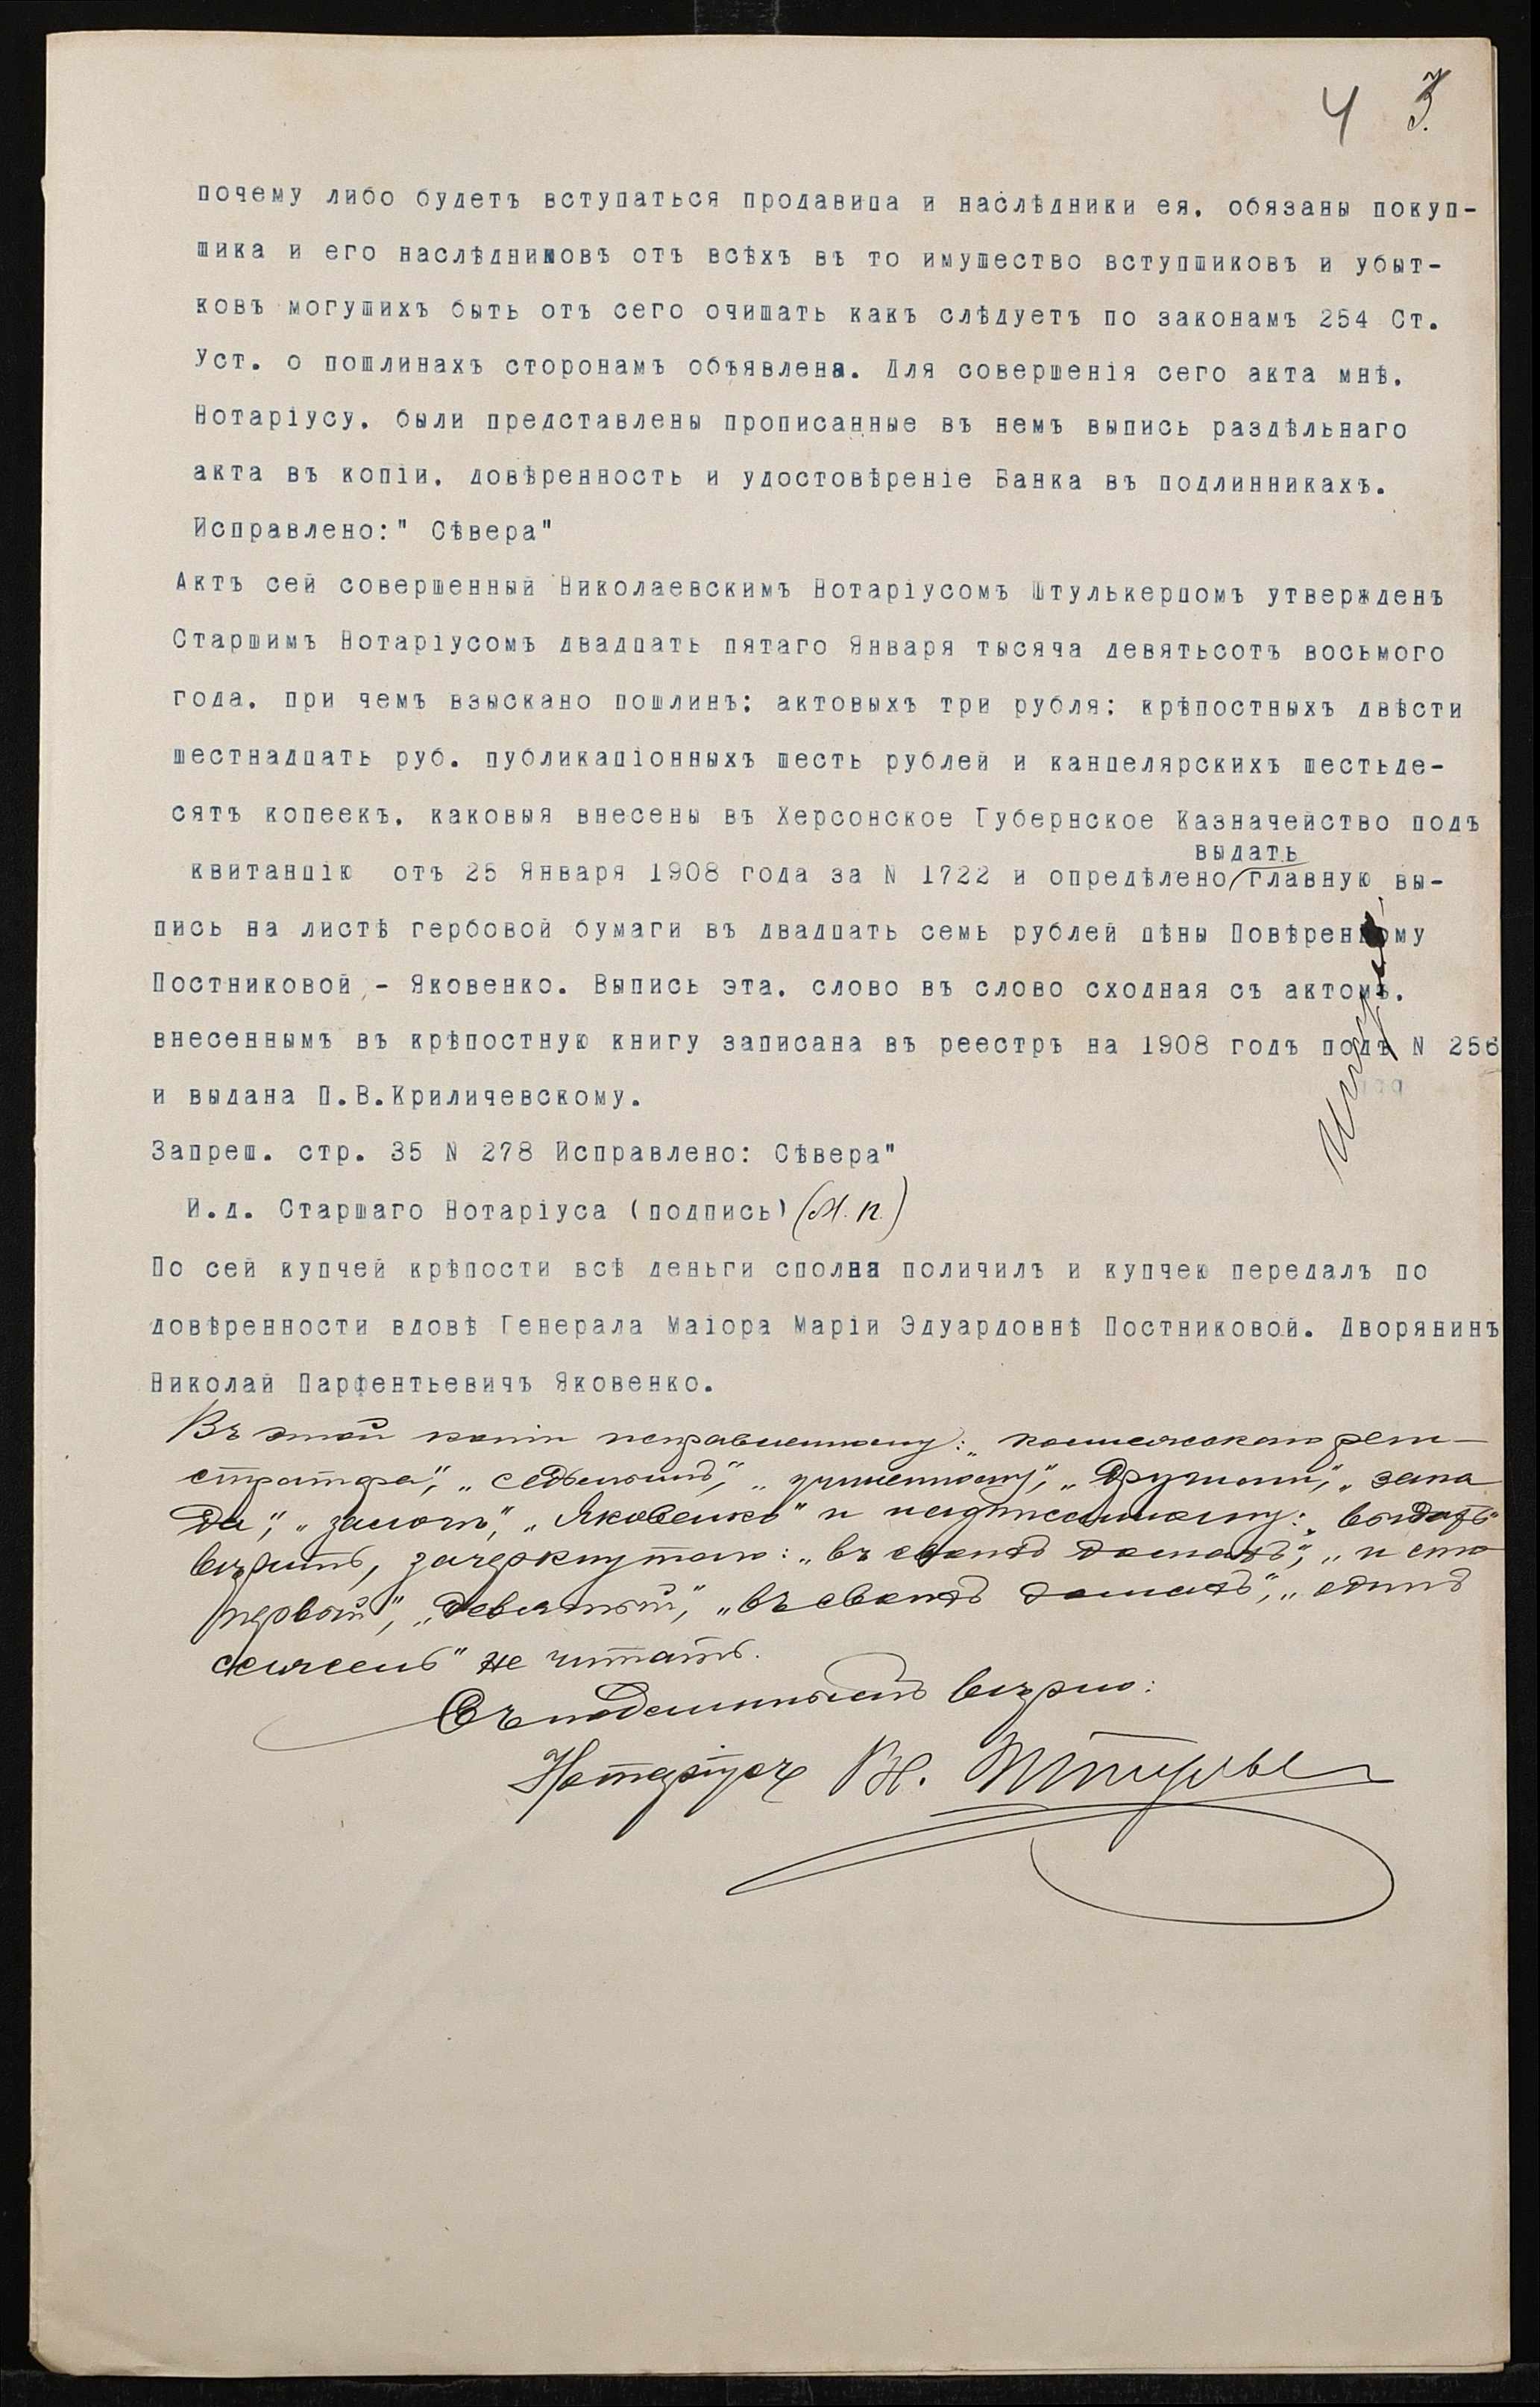 4 3
почему либо будетъ вступаться продавица и наслѣдники ея, обязаны покуп-
щика и его наслѣдниковъ отъ всѣхъ въ то имущество вступщиковъ и убыт-
ковъ могущихъ быть отъ сего очищать какъ слѣдуетъ по законамъ 254 Ст.
Уст. о пошлинахъ сторонамъ объявлена. Для совершенія сего акта мнѣ,
Нотаріусу, были представлены прописанные въ немъ выпись раздѣльнаго
акта въ копіи, довѣренность и удостовѣреніе Банка въ подлинникахъ.
Исправлено:" Сѣвера"
Актъ сей совершенный Николаевскимъ Нотаріусомъ Штулькерцомъ утвержденъ
Старшимъ Нотаріусомъ двадцать пятаго Января тысяча девятьсотъ восьмого
года, при чемъ взыскано пошлинъ: актовыхъ три рубля: крѣпостныхъ двѣсти
шестнадцать руб. публикаціонныхъ шесть рублей и канцелярскихъ шестьде-
сятъ копеекъ, каковыя внесены въ Херсонское Губернское Казначейство подъ
выдать
квитанцію отъ 25 Января 1908 года за N 1722 и опредѣлено главную вы-
пись на листѣ гербовой бумаги въ двадцать семь рублей цѣны Повѣренному
Постниковой - Яковенко. Выпись эта, слово въ слово сходная съ актомъ,
внесеннымъ въ крѣпостную книгу записана въ реестръ на 1908 годъ подъ N 256
и выдана П.В.Криличевскому.
Запрещ. стр. 35 N 278 Исправлено: Сѣвера"
И.д. Старшаго Нотаріуса (подпись) (М. п.)
По сей купчей крѣпости всѣ деньги сполна поличилъ и купчею передалъ по
довѣренности вдовѣ Генерала Маіора Маріи Эдуардовнѣ Постниковой. Дворянинъ
Николай Парфентьевичъ Яковенко.
Въ этой копіи исправленному: „коллежскаго реги-
стратора", „седьмымъ", „учиненному", „другими", „запа
да", „залогъ", „Яковенко" и надписанному: „выдать"
вѣрить, зачеркнутаго: „въ своихъ домахъ", „и сто
первый", „девятый", „въ своихъ домахъ", „одинъ
сажень" не читать.
Съ подлиннымъ вѣрно:
Нотаріусъ Вл. Штульк